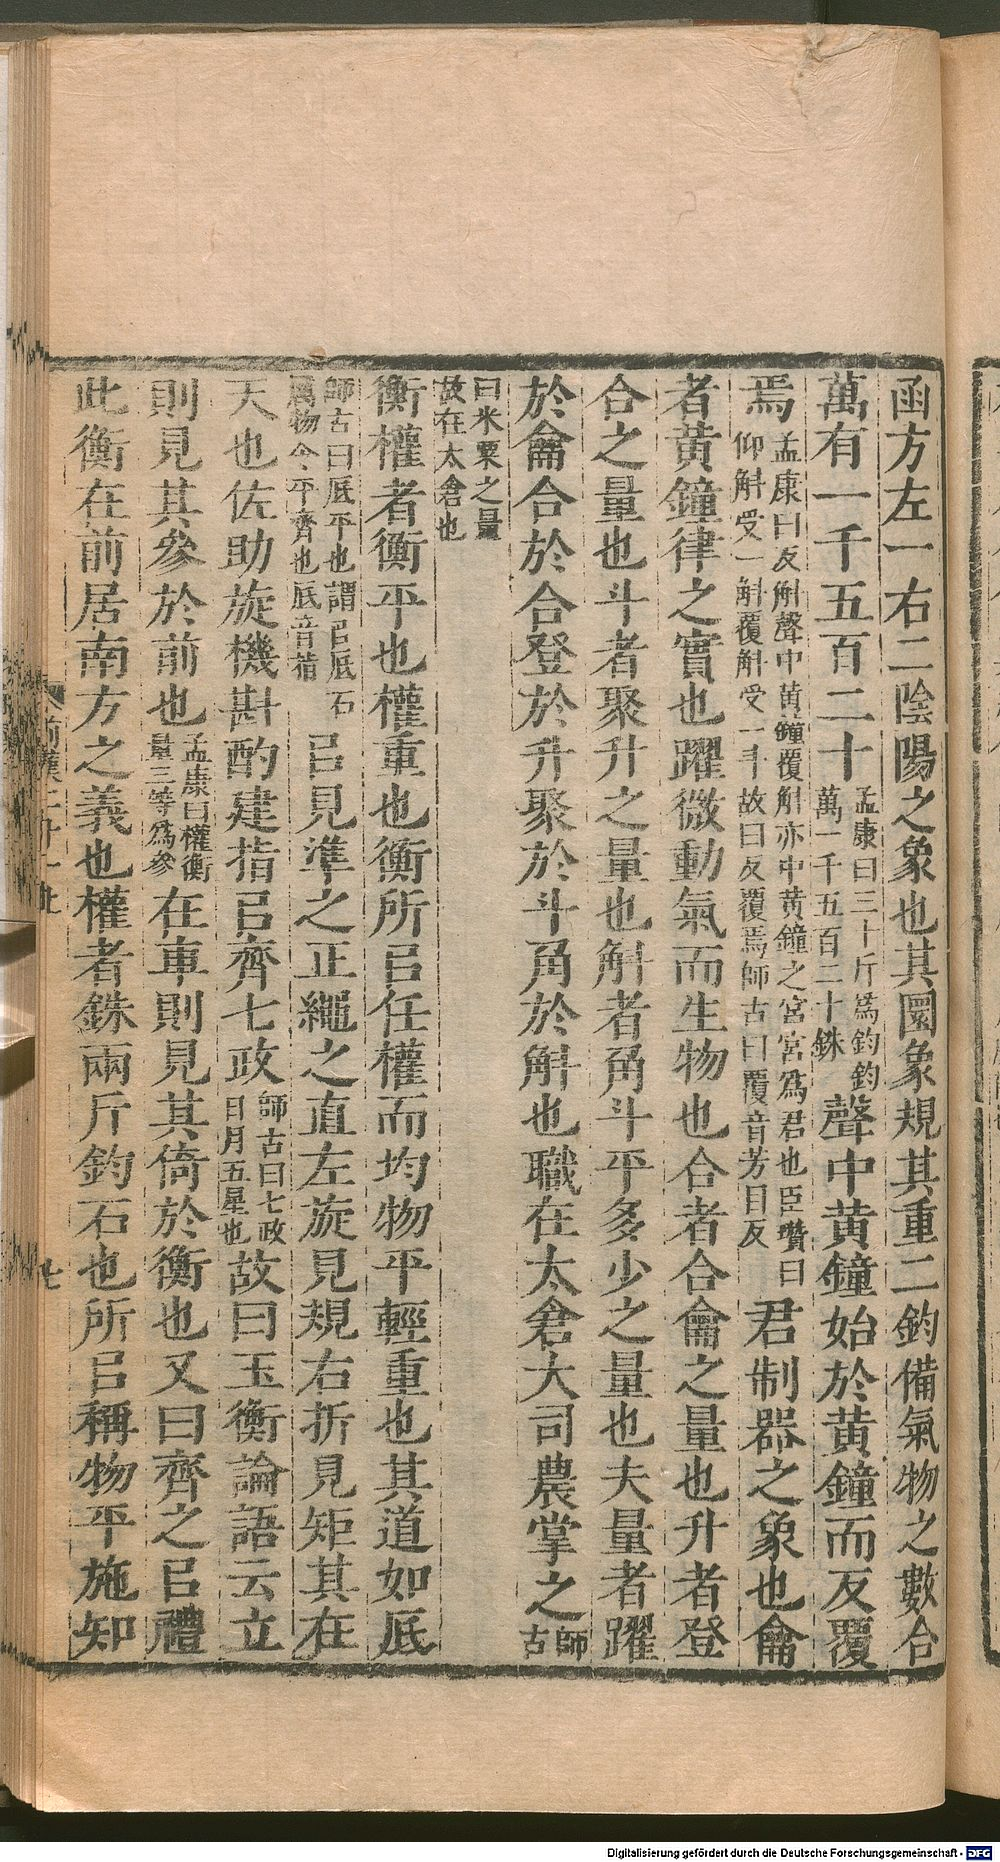 函方左一右二陰陽之象也其圜象規其重二鈞備氣物之數合
萬有一千五百二十孟康曰三十斤爲鈞鈞萬一千五百二十銖聲中黃鐘始於黃鐘而反覆
焉孟康曰反斛聲中黃鐘覆斛亦中黃鐘之宮宮爲君也臣瓚曰仰斛受一斛覆斛受一斗故曰反覆焉師古曰覆音芳目反君制器之象也龠
者黃鐘律之實也躍微動氣而生物也合者合龠之量也升者登
合之量也斗者聚升之量也斛者角斗平多少之量也夫量者躍
於龠合於合登於升聚於斗角於斛也職在太倉大司農掌之師古
曰米粟之量故在太倉也
衡權者衡平也權重也衡所㠯任權而均物平輕重也其道如底
師古曰底平也謂㠯底石厲物令平齊也底音指㠯見準之正繩之直左旋見規右折見矩其在
天也佐助旋機斟酌建指㠯齊七政師古曰七政日月五星也故曰玉衡論語云立
則見其參於前也孟康曰權衡量三等爲參在車則見其倚於衡也又曰齊之㠯禮
此衡在前居南方之義也權者銖兩斤鈞石也所㠯稱物平施知
前漢二十一上
七
Digitalisierung gefördert durch die Deutsche Forschungsgemeinschaft - DFG